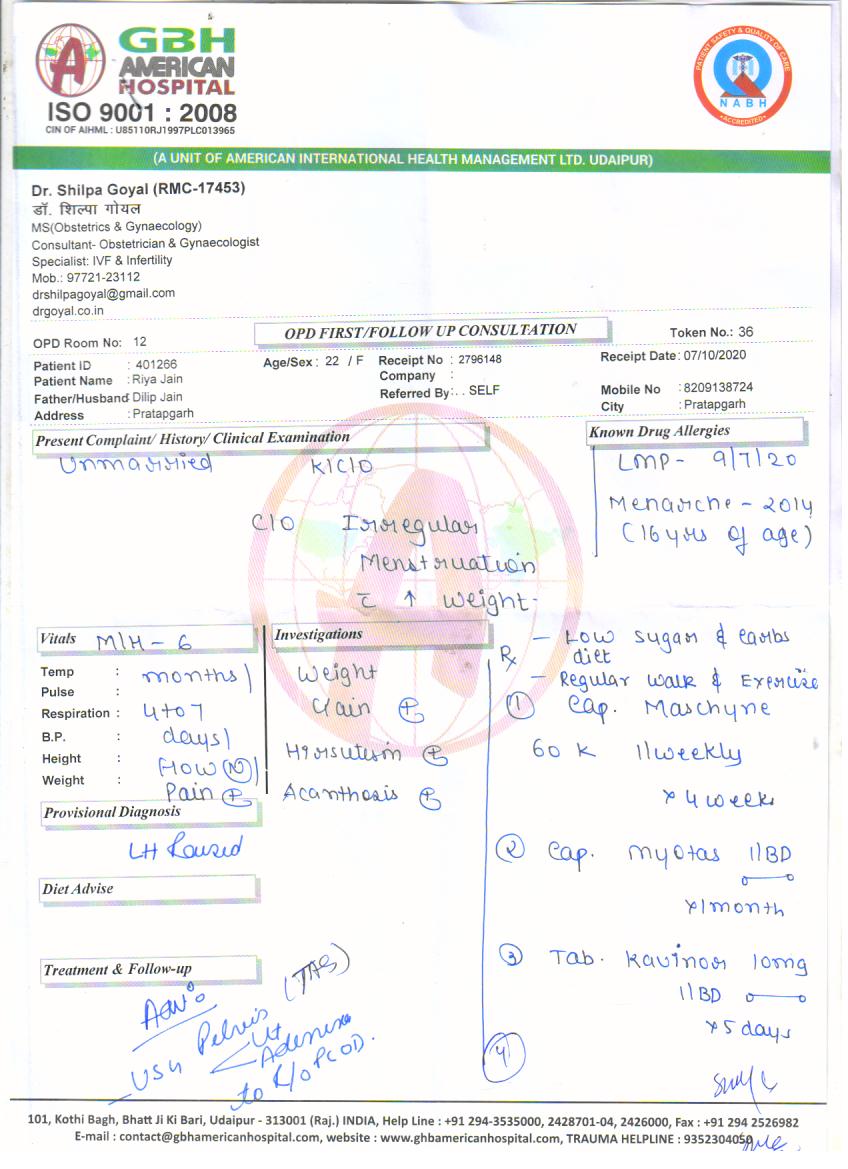 GBH
AMERICAN
HOSPITAL
ISO 9001 : 2008
CIN OF AIHML : U85110RJ1997PLC013965
PATIENT SAFETY & QUALITY OF CARE
NABH
ACCREDITED
(A UNIT OF AMERICAN INTERNATIONAL HEALTH MANAGEMENT LTD. UDAIPUR)
Dr. Shilpa Goyal (RMC-17453)
डॉ. शिल्पा गोयल
MS(Obstetrics & Gynaecology)
Consultant- Obstetrician & Gynaecologist
Specialist: IVF & Infertility
Mob.: 97721-23112
drshilpagoyal@gmail.com
drgoyal.co.in
OPD Room No: 12
OPD FIRST/FOLLOW UP CONSULTATION
Token No.: 36
Patient ID : 401266
Age/Sex : 22 / F
Receipt No : 2796148
Receipt Date: 07/10/2020
Patient Name : Riya Jain
Company :
Father/Husband Dilip Jain
Referred By: . . SELF
Mobile No : 8209138724
Address : Pratapgarh
City : Pratapgarh
Present Complaint/ History/ Clinical Examination
Known Drug Allergies
Unmarried K/C/O
LMP- 9/7/20
Menarche - 2014
(16 yrs of age)
C/O Irregular
Menstruation
c̅ ↑ weight-
Vitals M/H - 6
Temp : months/
Pulse :
Respiration : 4 to 7
B.P. : days/
Height : Flow (N)/
Weight : Pain ⊕
Investigations
Weight
Gain ⊕
Hirsutism ⊕
Acanthosis ⊕
Rx - Low sugar & carbs
diet
- Regular walk & Exercise
① Cap. Maschyne
60 K 1/weekly
x 4 weeks
② Cap. Myotas 1/BD
x 1 month
③ Tab. Kavinor 10mg
1/BD
x 5 days
④
Provisional Diagnosis
LH Raised
Diet Advise
Treatment & Follow-up
Adv:
USG Pelvis (TAS)
Ut
Adenexa
to R/o PCOD.
101, Kothi Bagh, Bhatt Ji Ki Bari, Udaipur - 313001 (Raj.) INDIA, Help Line : +91 294-3535000, 2428701-04, 2426000, Fax : +91 294 2526982
E-mail : contact@gbhamericanhospital.com, website : www.ghbamericanhospital.com, TRAUMA HELPLINE : 9352304050